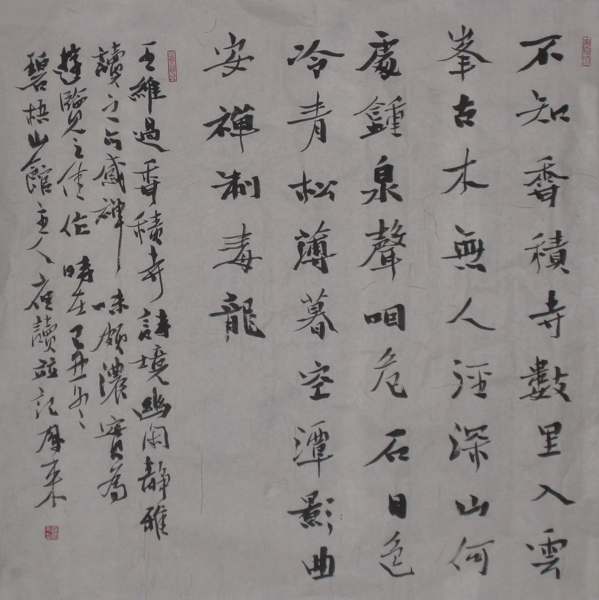 不知香積寺數里入雲
峯古木無人徑深山何
處鐘泉聲咽危石日色
冷青松薄暮空潭影曲
安禪制毒龍
王維過香積寺詩境幽閑靜雅
讀之感禪味頗濃實為
遊覽之佳作時在己丑冬
碧梧山館主人夜讀並記